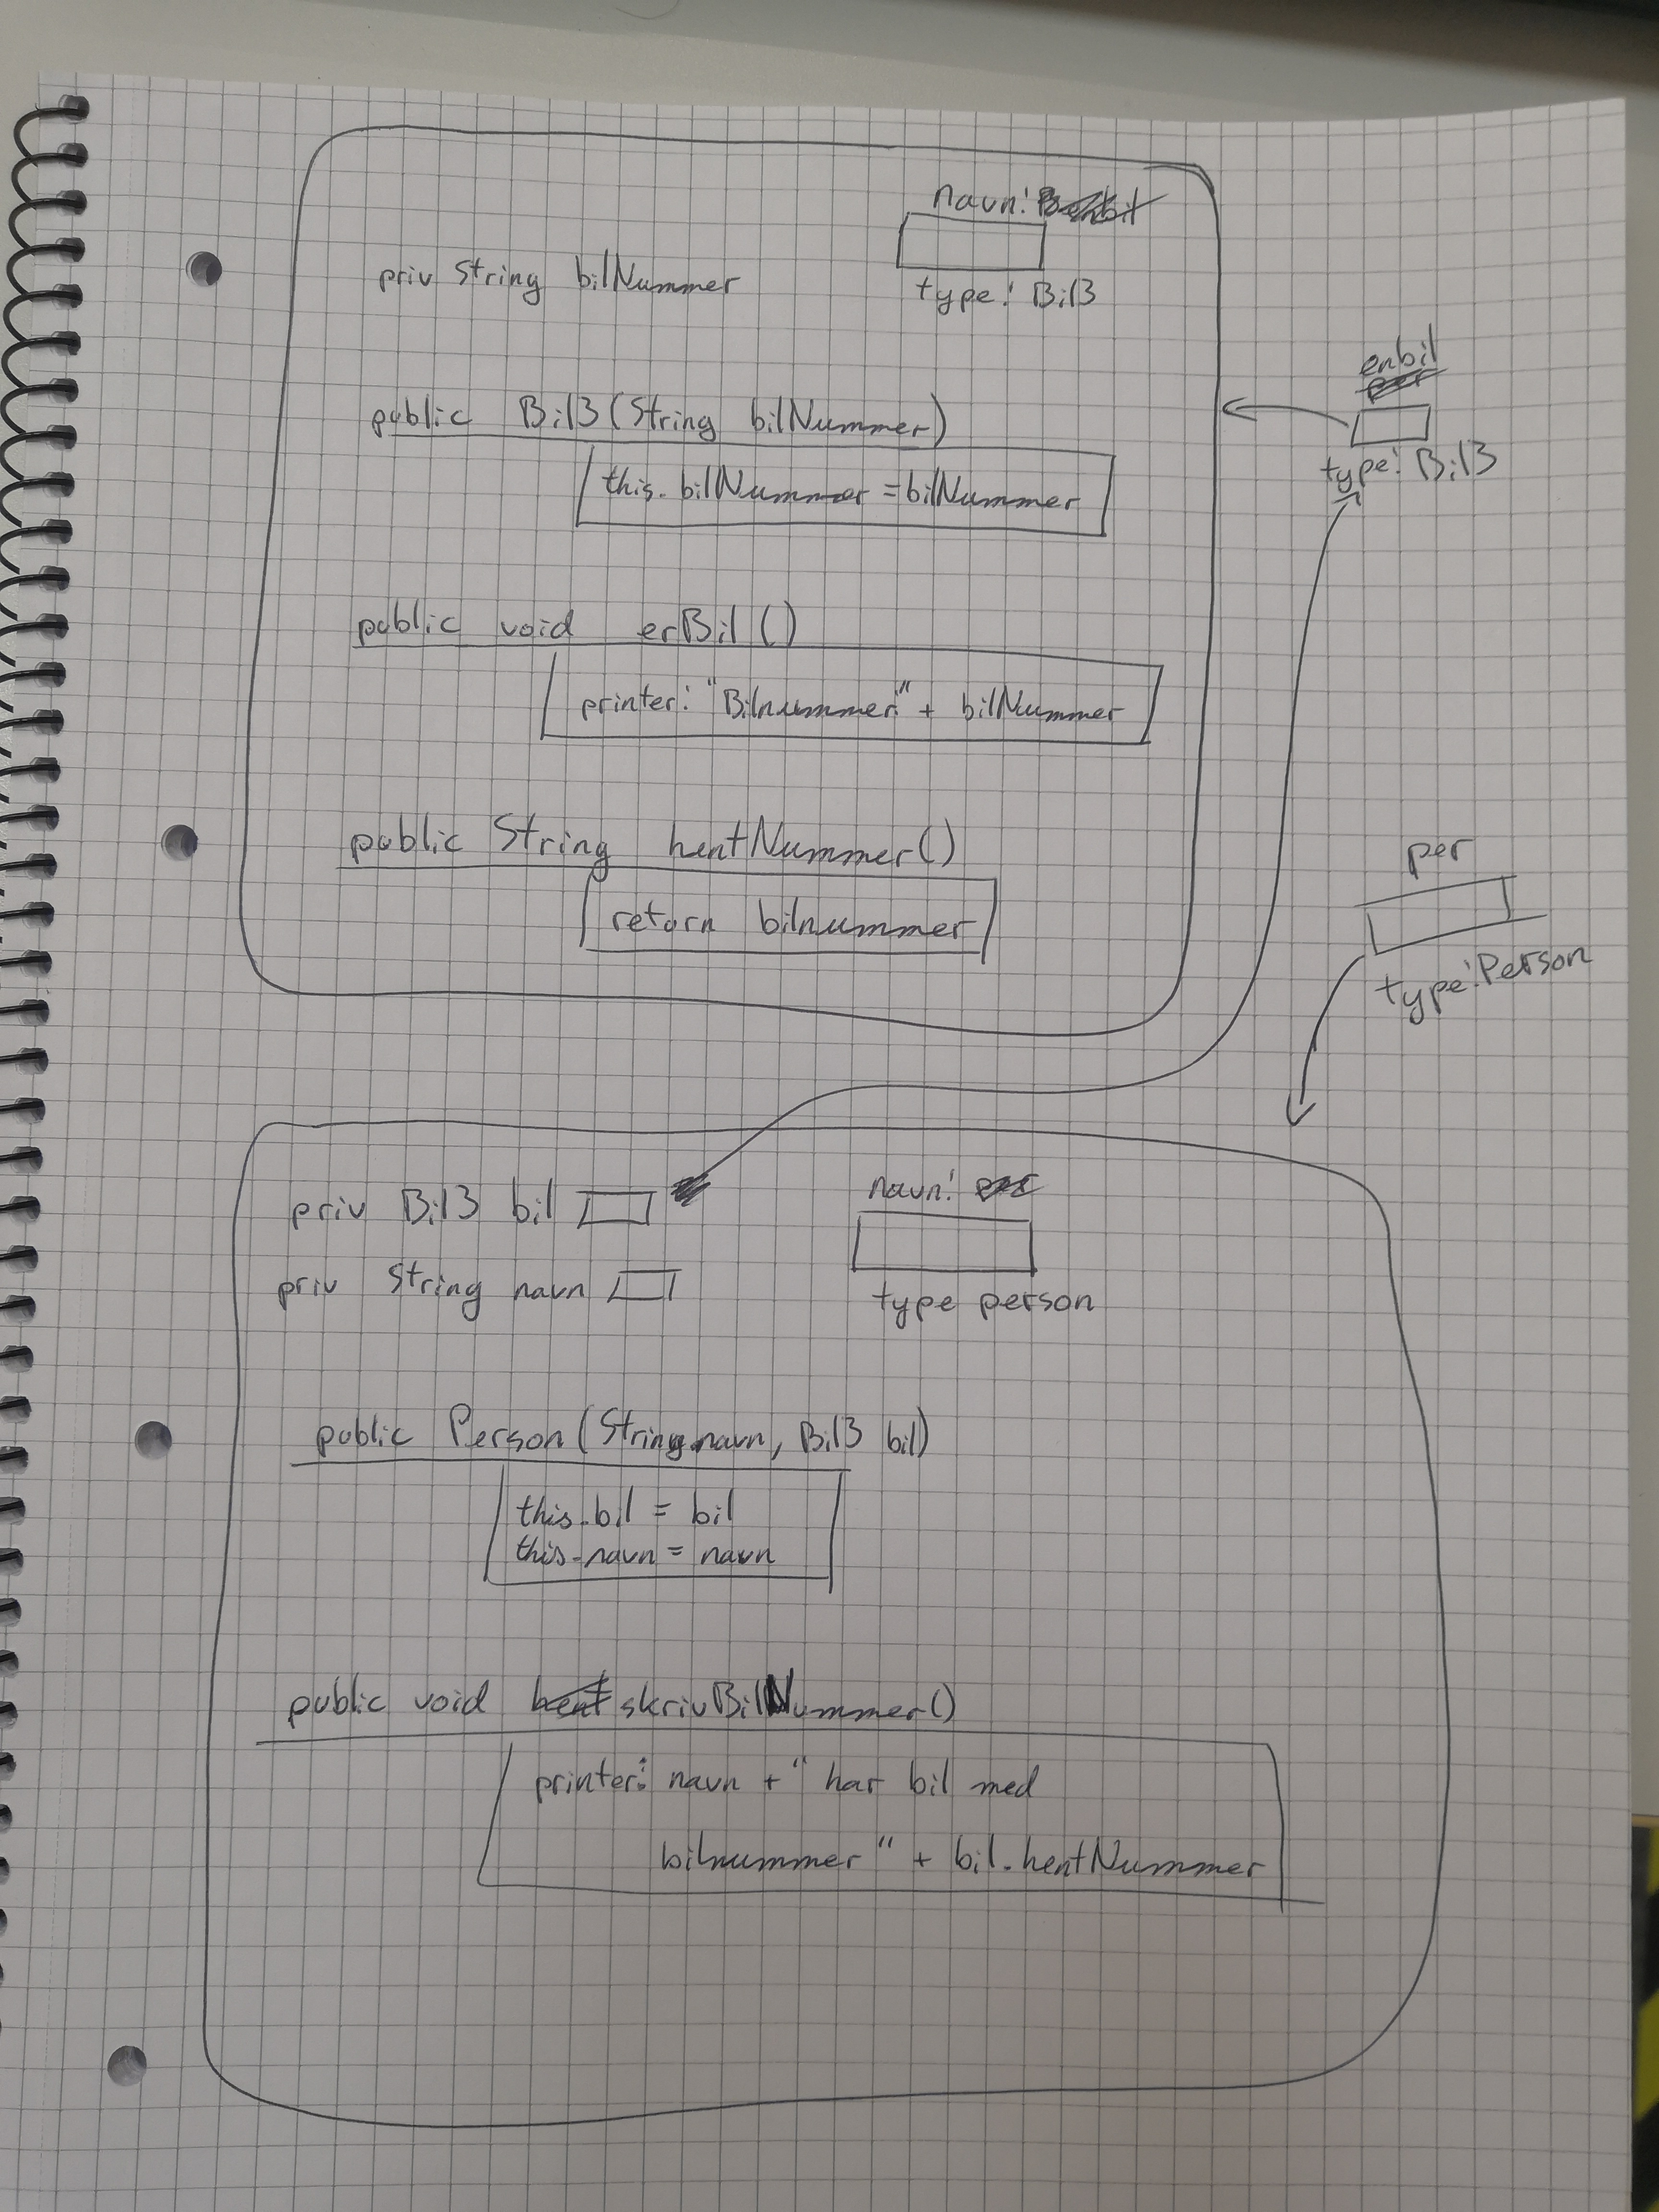 navn:
priv String bilNummer
type: Bil3
enbil
per
type: Bil3
public Bil3(String bilNummer)
this.bilNummer = bilNummer
public void erBil()
printer: "Bilnummer:" + bilNummer
public String hentNummer()
return bilnummer
per
type: Person
priv Bil3 bil
navn: per
priv String navn
type person
public Person(String navn, Bil3 bil)
this.bil = bil
this.navn = navn
public void hent skrivBilNummer()
printer: navn + " har bil med
bilnummer " + bil.hentNummer